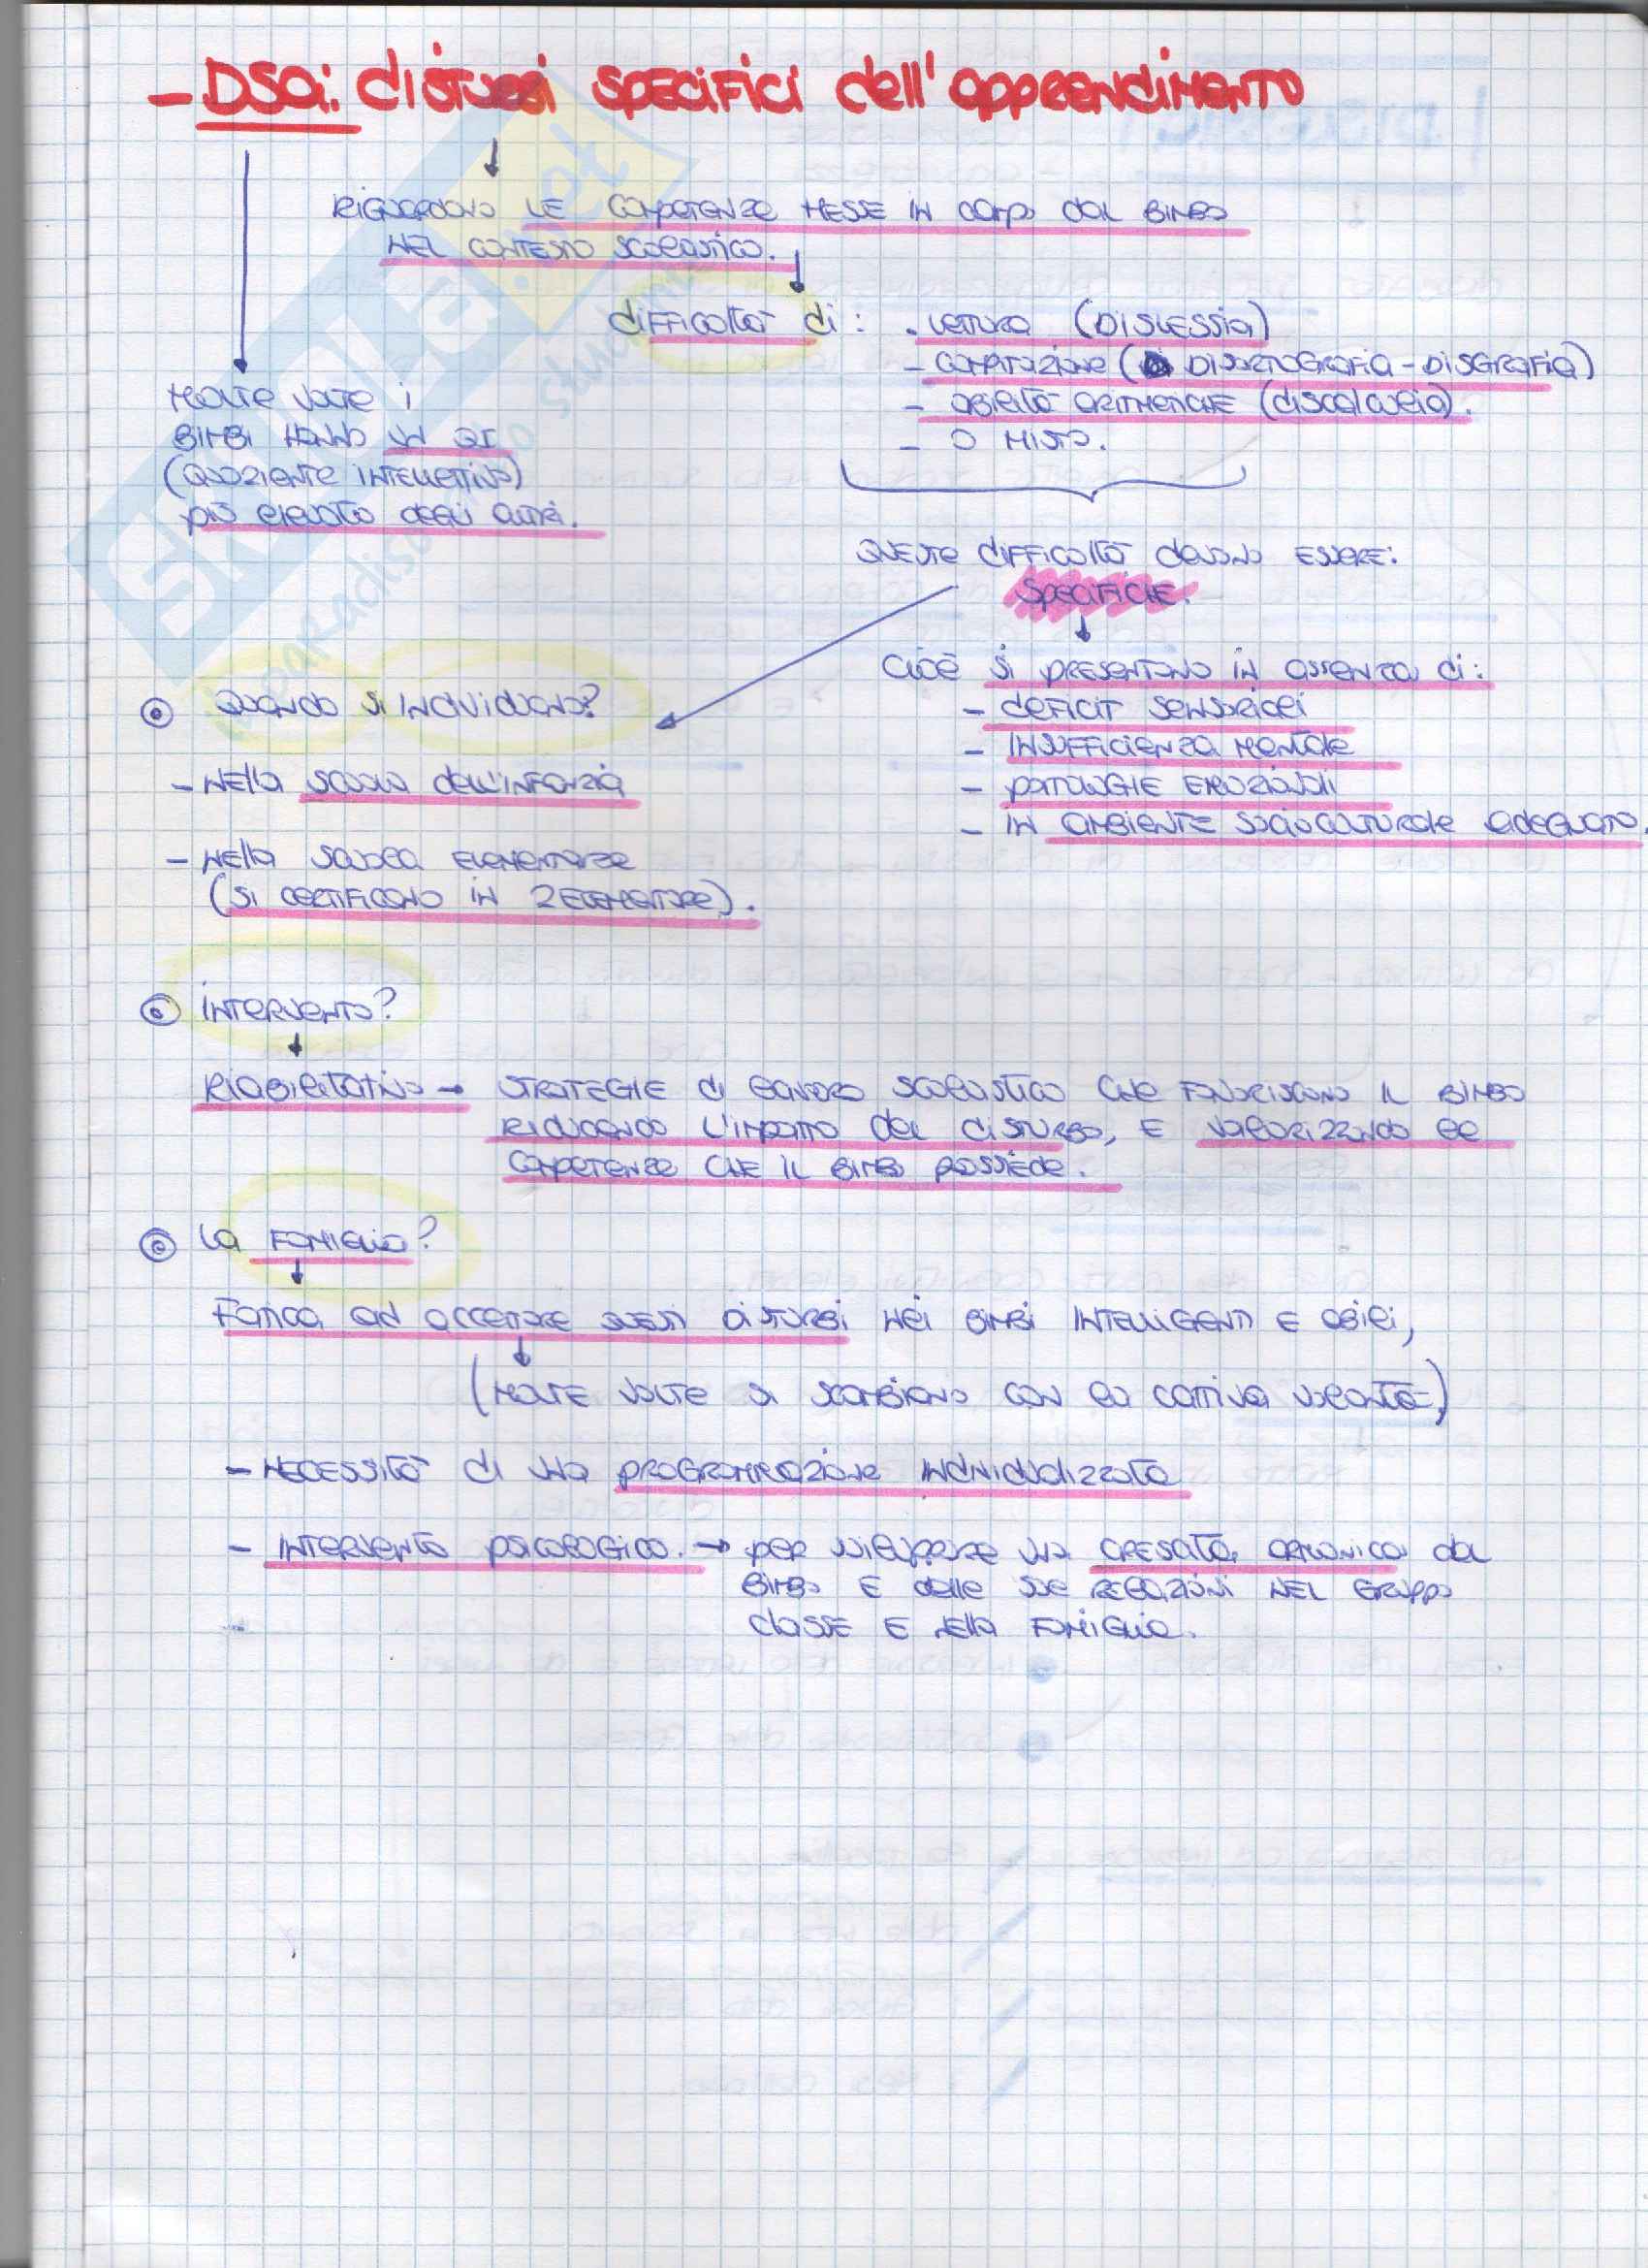 - DSA: disturbi specifici dell'apprendimento
RIGUARDANO LE COMPETENZE MESSE IN CAMPO DAL BIMBO
NEL CONTESTO SCOLASTICO.
difficoltà di: - LETTURA (DISLESSIA)
- COMPITAZIONE (DISORTOGRAFIA - DISGRAFIA)
- ABILITÀ ARITMETICHE (discalculia).
- O MISTO.
MOLTE VOLTE i
BIMBI HANNO UN QI
(QUOZIENTE INTELLETTIVO)
più elevato degli altri.
QUESTE difficoltà devono ESSERE:
SPECIFICHE.
Cioè si PRESENTANO IN assenza di:
- deficit sensoriali
- INSUFFICIENZA MENTALE
- PATOLOGIE EMOZIONALI
- IN AMBIENTE SOCIOCULTURALE adeguato.
Quando si INDIVIDUANO?
- NELLA SCUOLA dell'INFANZIA
- NELLA SCUOLA ELEMENTARE
(SI CERTIFICANO IN 2 ELEMENTARE).
INTERVENTO?
RIABILITATIVO → STRATEGIE di LAVORO SCOLASTICO CHE FAVORISCONO IL BIMBO
RIDUCENDO L'IMPATTO DEL DISTURBO, E VALORIZZANDO LE
COMPETENZE CHE IL BIMBO POSSIEDE.
La FAMIGLIA?
Fatica ad accettare questi disturbi nei bimbi INTELLIGENTI E abili,
(MOLTE VOLTE si scambiano con la cattiva volontà,)
- NECESSITÀ di una PROGRAMMAZIONE INDIVIDUALIZZATA
- INTERVENTO PSICOLOGICO. → per sviluppare una CRESCITA ARMONICA del
BIMBO E delle sue RELAZIONI NEL GRUPPO
classe E nella FAMIGLIA.
SKUOLA.net
il paradiso dello studente